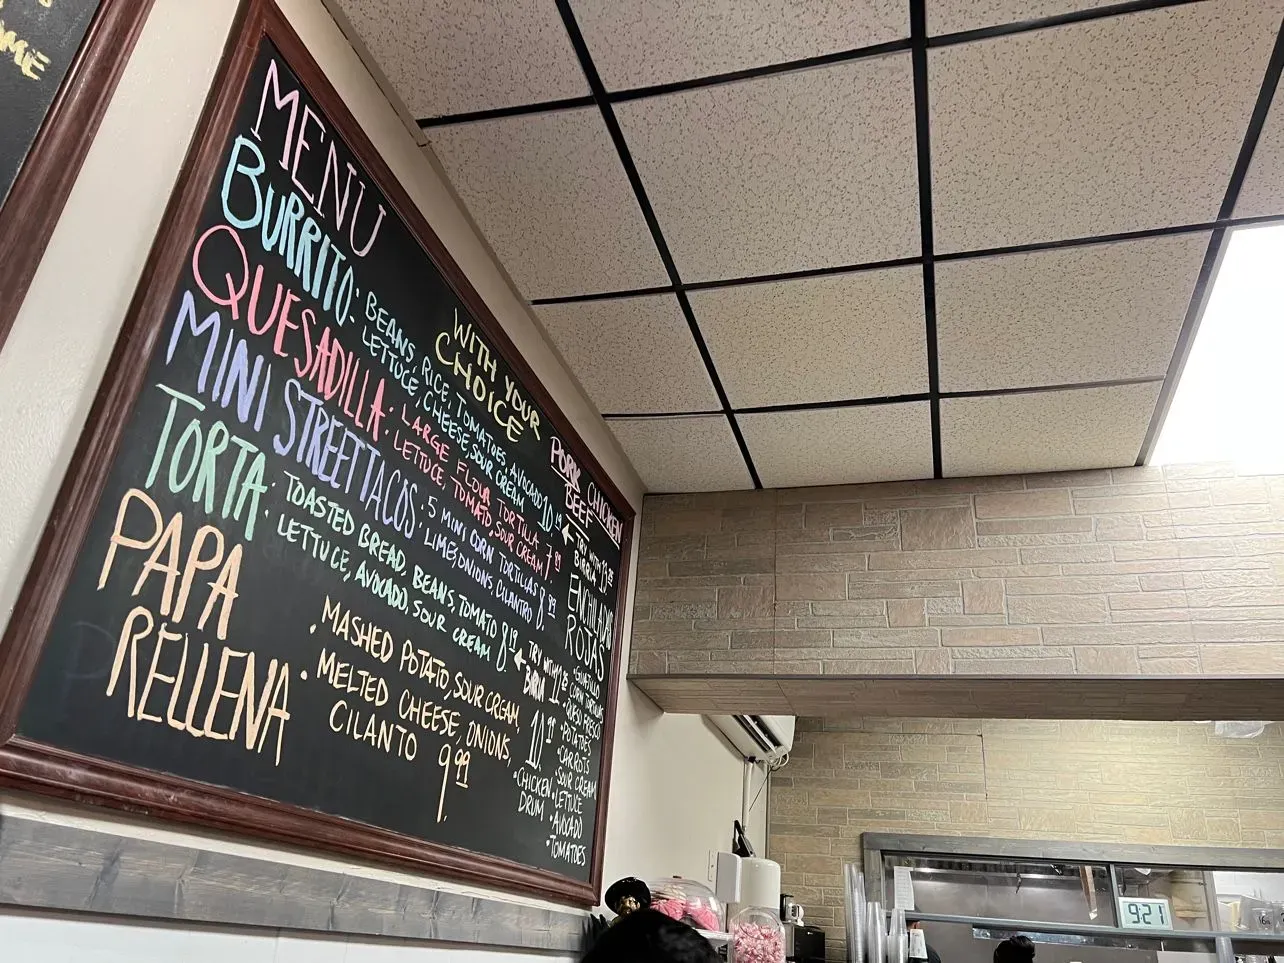 MENU
WITH YOUR
CHOICE
PORK CHICKEN
BEEF
BURRITO: BEANS, RICE, TOMATOES, AVOCADO
LETTUCE, CHEESE, SOUR CREAM
TRY WITH
BIRRIA
QUESADILLA: LARGE FLOUR TORTILLA
LETTUCE, TOMATO, SOUR CREAM 7.99
MINI STREET TACOS: 5 MINI CORN TORTILLAS
LIME, ONIONS, CILANTRO 8.99
TORTA: TOASTED BREAD, BEANS, TOMATO
LETTUCE, AVOCADO, SOUR CREAM 8.
TRY WITH
BIRRIA
PAPA
RELLENA
• MASHED POTATO, SOUR CREAM,
• MELTED CHEESE, ONIONS,
CILANTO 9.99
ENCHILADAS
ROJAS
• GUAJILLO
CORN TORTILLAS
• QUESO FRESCO
• POTATOES
• CARROTS
• SOUR CREAM
• LETTUCE
• AVOCADO
• TOMATOES
• CHICKEN
DRUM
9:21